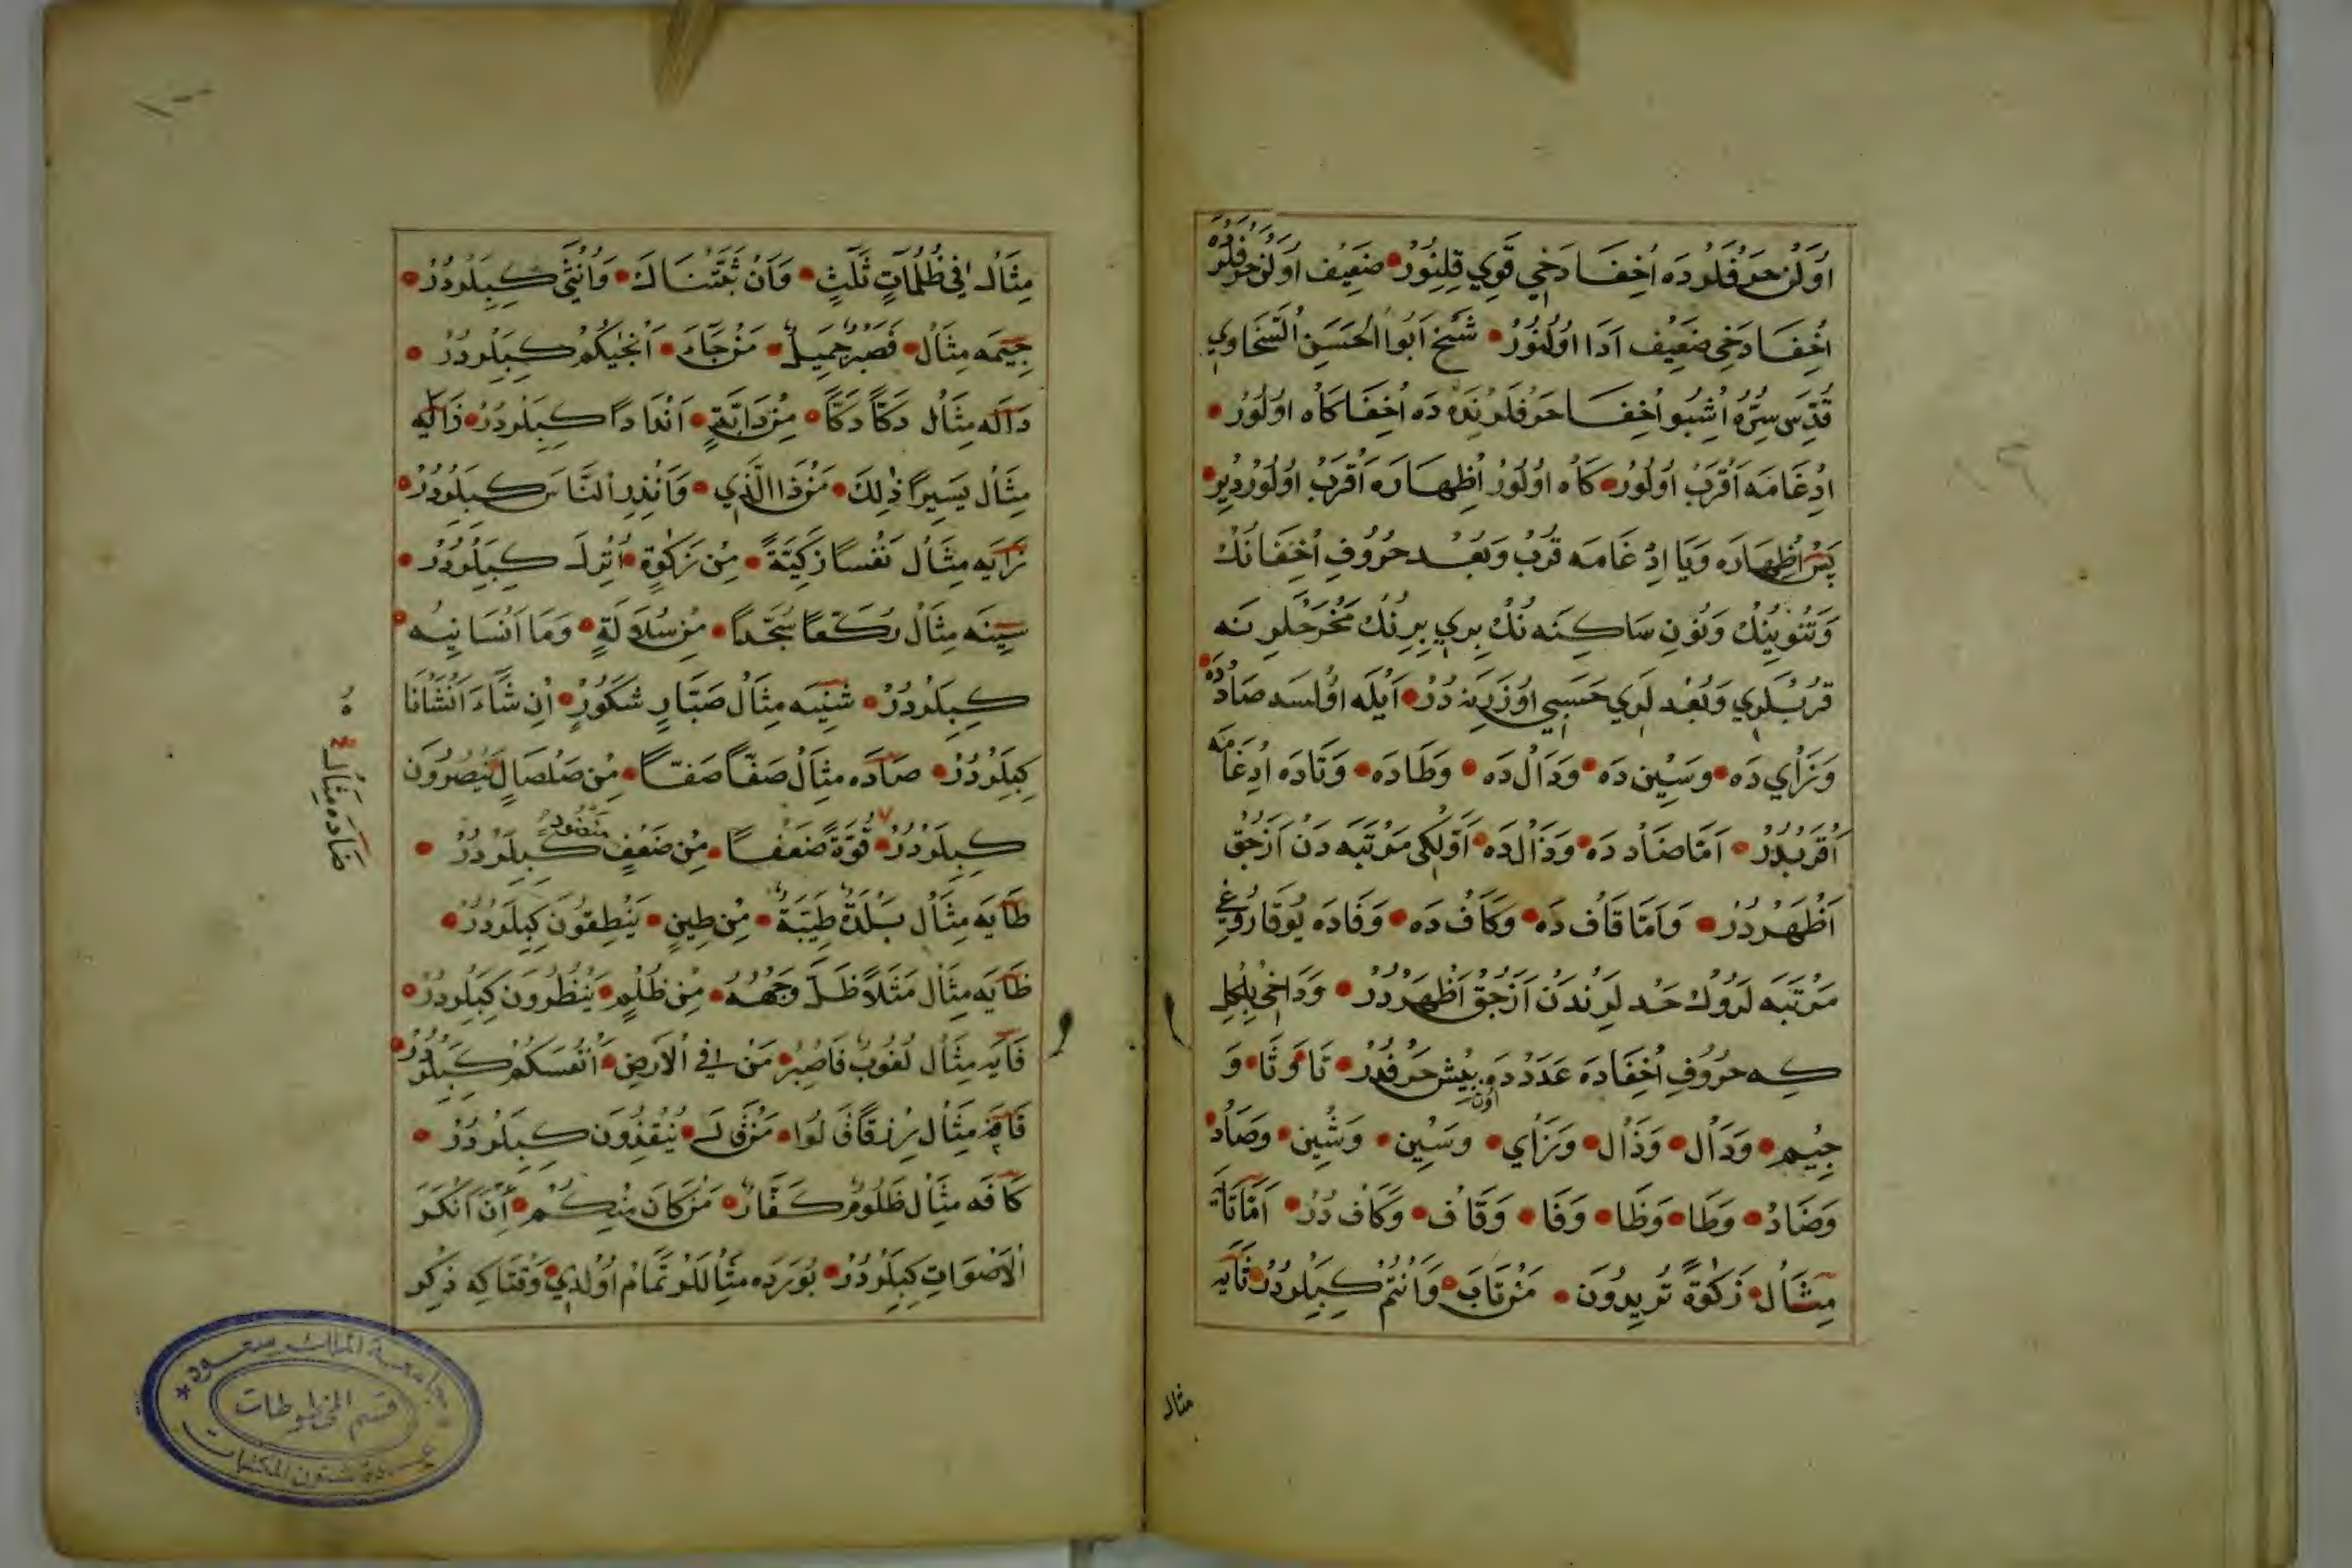 اَوَلَنْ حَرْفْلَرْدَه اُخِفَا دَخِي قَوِي قِلِنُورْ ضَعِيف اَوَلَنْ حَرْفْلَرْدَه
اُخِفَا دَخِي ضَعِيف اَدَا اَوُلُنُورْ شَيْخ اَبُوا الْحَسَنِ السَّخَاوِي
قُدِّسَ سِرُّهُ اُشْبُو اُخِفَا حَرْفْلَرِنْدَه دَه اُخِفَا كَاه اُولُورْ
اِدْغَامَه اَقْرَبْ اُولُورْ كَاه اُولُورْ اُظِهَارَه اَقْرَبْ اُولُورْ دِيرْ
پَسْ اُظِهَارَه وَيَا اِدْغَامَه قُرْبْ وَبُعْد حُرُوفِ اُخِفَانَكْ
وَتَنْوِينِكْ وَنُونِ سَاكِنَه نُكْ بِرِي بِرِنُكْ مَخْرَجْلَرِنَه
قُرْبْلَرِي وَبُعْدلَرِي حَسَبِي اُوزَرِينَه دُرْ اَيْلَه اَوُلسَه صَادْدَه
وَزَاْي دَه وَسِيْن دَه وَدَالْ دَه وَطَادَه وَتَادَه اِدْغَامَه
اَقْرَبْدُرْ اَمَّا ضَادْ دَه وَذَالْ دَه اَوَّلْكِى مَرْتَبَه دَنْ اَزْجِقْ
اَظْهَرْدُرْ وَاَمَّا قَافْ دَه وَكَافْ دَه وَفَادَه يُوقَارُوغِي
مَرْتَبَه لَرُوكْ حَدلَرِنْدَنْ اَزْجِقْ اَظْهَرْدُرْ وَدَاخِي بِلْكِلْ
كِه حُرُوفِ اُخِفَادَه عَدَدْدَه اون بِيْش حَرْفْدُرْ تَا وَثَا وَ
جِيْم وَدَالْ وَذَالْ وَزَاْي وَسِيْن وَشِيْن وَصَادْ
وَضَادْ وَطَا وَظَا وَفَا وَقَافْ وَكَافْ دُرْ اَمَّا تَايَه
مِثَالْ زَكٰوةً تُرِيدُونَ مَنْ تَابَ وَاَنْتُمْ كِبِيلَرْدُرْ ثَايَه
مثال
مِثَالْ فِي ظُلُمَاتٍ ثَلٰثٍ وَاَنْ ثَبَّتْنَاكَ وَاُنْثٰى كِبِيلَرْدُرْ
جِيمَه مِثَالْ فَصَبْرٌ جَمِيلٌ مَنْ جَاءَ اَنْجٰيكُمْ كِبِيلَرْدُرْ
دَالَه مِثَالْ دَكًّا دَكًّا مِنْ دَابَّةٍ اَنْدَادًا كِبِيلَرْدُرْ ذَالَه
مِثَالْ يَسِيرًا ذٰلِكَ مَنْ ذَا الَّذِي وَاَنْذِرِ النَّاسَ كِبِيلَرْدُرْ
زَايَه مِثَالْ نَفْسًا زَكِيَّةً مِنْ زَكٰوةٍ اُنْزِلَ كِبِيلَرْدُرْ
سِينَه مِثَالْ رُكَّعًا سُجَّدًا مِنْ سُلَالَةٍ وَمَا اَنْسَانِيهُ
كِبِيلَرْدُرْ شِينَه مِثَالْ صَبَّارٍ شَكُورٍ اِنْ شَاءَ اَنْشَانَا
كِبِيلَرْدُرْ صَادَه مِثَالْ صَفًّا صَفًّا مِنْ صَلْصَالٍ يَنْصُرُونَ
كِبِيلَرْدُرْ قُوَّةٍ ضَعْفًا مِنْ ضَعْفٍ مَنْضُودٍ كِبِيلَرْدُرْ
طَايَه مِثَالْ بَلْدَةٌ طَيِّبَةٌ مِنْ طِينٍ يَنْطِقُونَ كِبِيلَرْدُرْ
ظَايَه مِثَالْ مَثَلاً ظَلَّ وَجْهُهُ مِنْ ظُلْمٍ يَنْظُرُونَ كِبِيلَرْدُرْ
فَايَه مِثَالْ لُغُوبٌ فَاصْبِرْ مَنْ فِي الْاَرْضِ اَنْفُسَكُمْ كِبِيلَرْدُرْ
قَافَه مِثَالْ رِزْقًا قَالُوا مَنْ قَالَ يُنْقِذُونَ كِبِيلَرْدُرْ
كَافَه مِثَالْ ظَلُومٌ كَفَّارٌ مَنْ كَانَ مِنْكُمْ اِنَّ اَنْكَرَ
الْاَصْوَاتِ كِبِيلَرْدُرْ بُويَرْدَه مِثَالْلَرْ تَمَامْ اَوُلْدِي وَقْتَاكِه ذِكْر
ضَادَه مِثَالْ
جامعة الملك سعود
قسم المخطوطات
عمادة شئون المكتبات